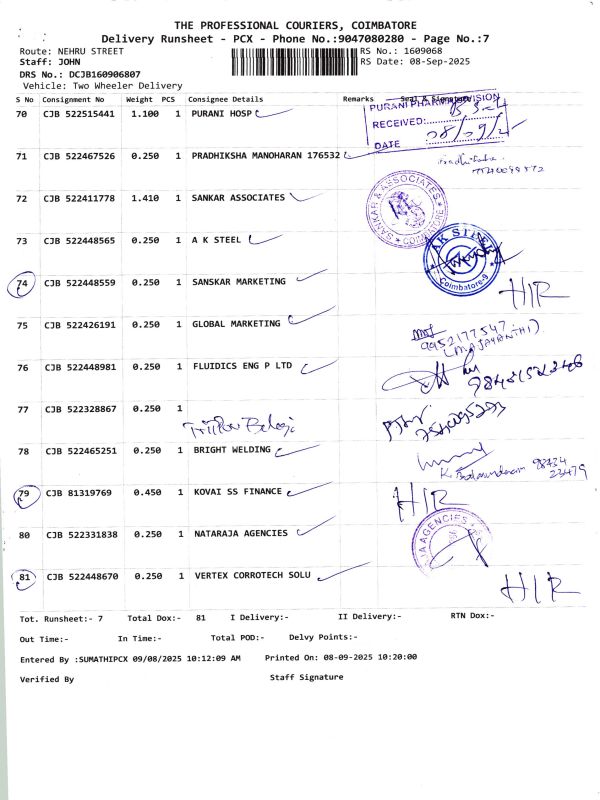 THE PROFESSIONAL COURIERS, COIMBATORE
Delivery Runsheet - PCX - Phone No.:9047080280 - Page No.:7
Route: NEHRU STREET RS No.: 1609068
Staff: JOHN RS Date: 08-Sep-2025
DRS No.: DCJB160906807
Vehicle: Two Wheeler Delivery
S No Consignment No Weight PCS Consignee Details Remarks Seal & Signature
70 CJB 522515441 1.100 1 PURANI HOSP
PURANI PHARMA DIVISION
RECEIVED:
DATE 08/09/25
71 CJB 522467526 0.250 1 PRADHIKSHA MANOHARAN 176532
72 CJB 522411778 1.410 1 SANKAR ASSOCIATES
SANKAR & ASSOCIATES COIMBATORE
73 CJB 522448565 0.250 1 A K STEEL
AK STEEL Coimbatore-9
74 CJB 522448559 0.250 1 SANSKAR MARKETING H/R
75 CJB 522426191 0.250 1 GLOBAL MARKETING
9952177547
(MAJAYANTHI)
76 CJB 522448981 0.250 1 FLUIDICS ENG P LTD
77 CJB 522328867 0.250 1
78 CJB 522465251 0.250 1 BRIGHT WELDING
98434
23479
79 CJB 81319769 0.450 1 KOVAI SS FINANCE H/R
80 CJB 522331838 0.250 1 NATARAJA AGENCIES
JA AGENCIES
81 CJB 522448670 0.250 1 VERTEX CORROTECH SOLU H/R
Tot. Runsheet:- 7 Total Dox:- 81 I Delivery:- II Delivery:- RTN Dox:-
Out Time:- In Time:- Total POD:- Delvy Points:-
Entered By :SUMATHIPCX 09/08/2025 10:12:09 AM Printed On: 08-09-2025 10:20:00
Verified By Staff Signature